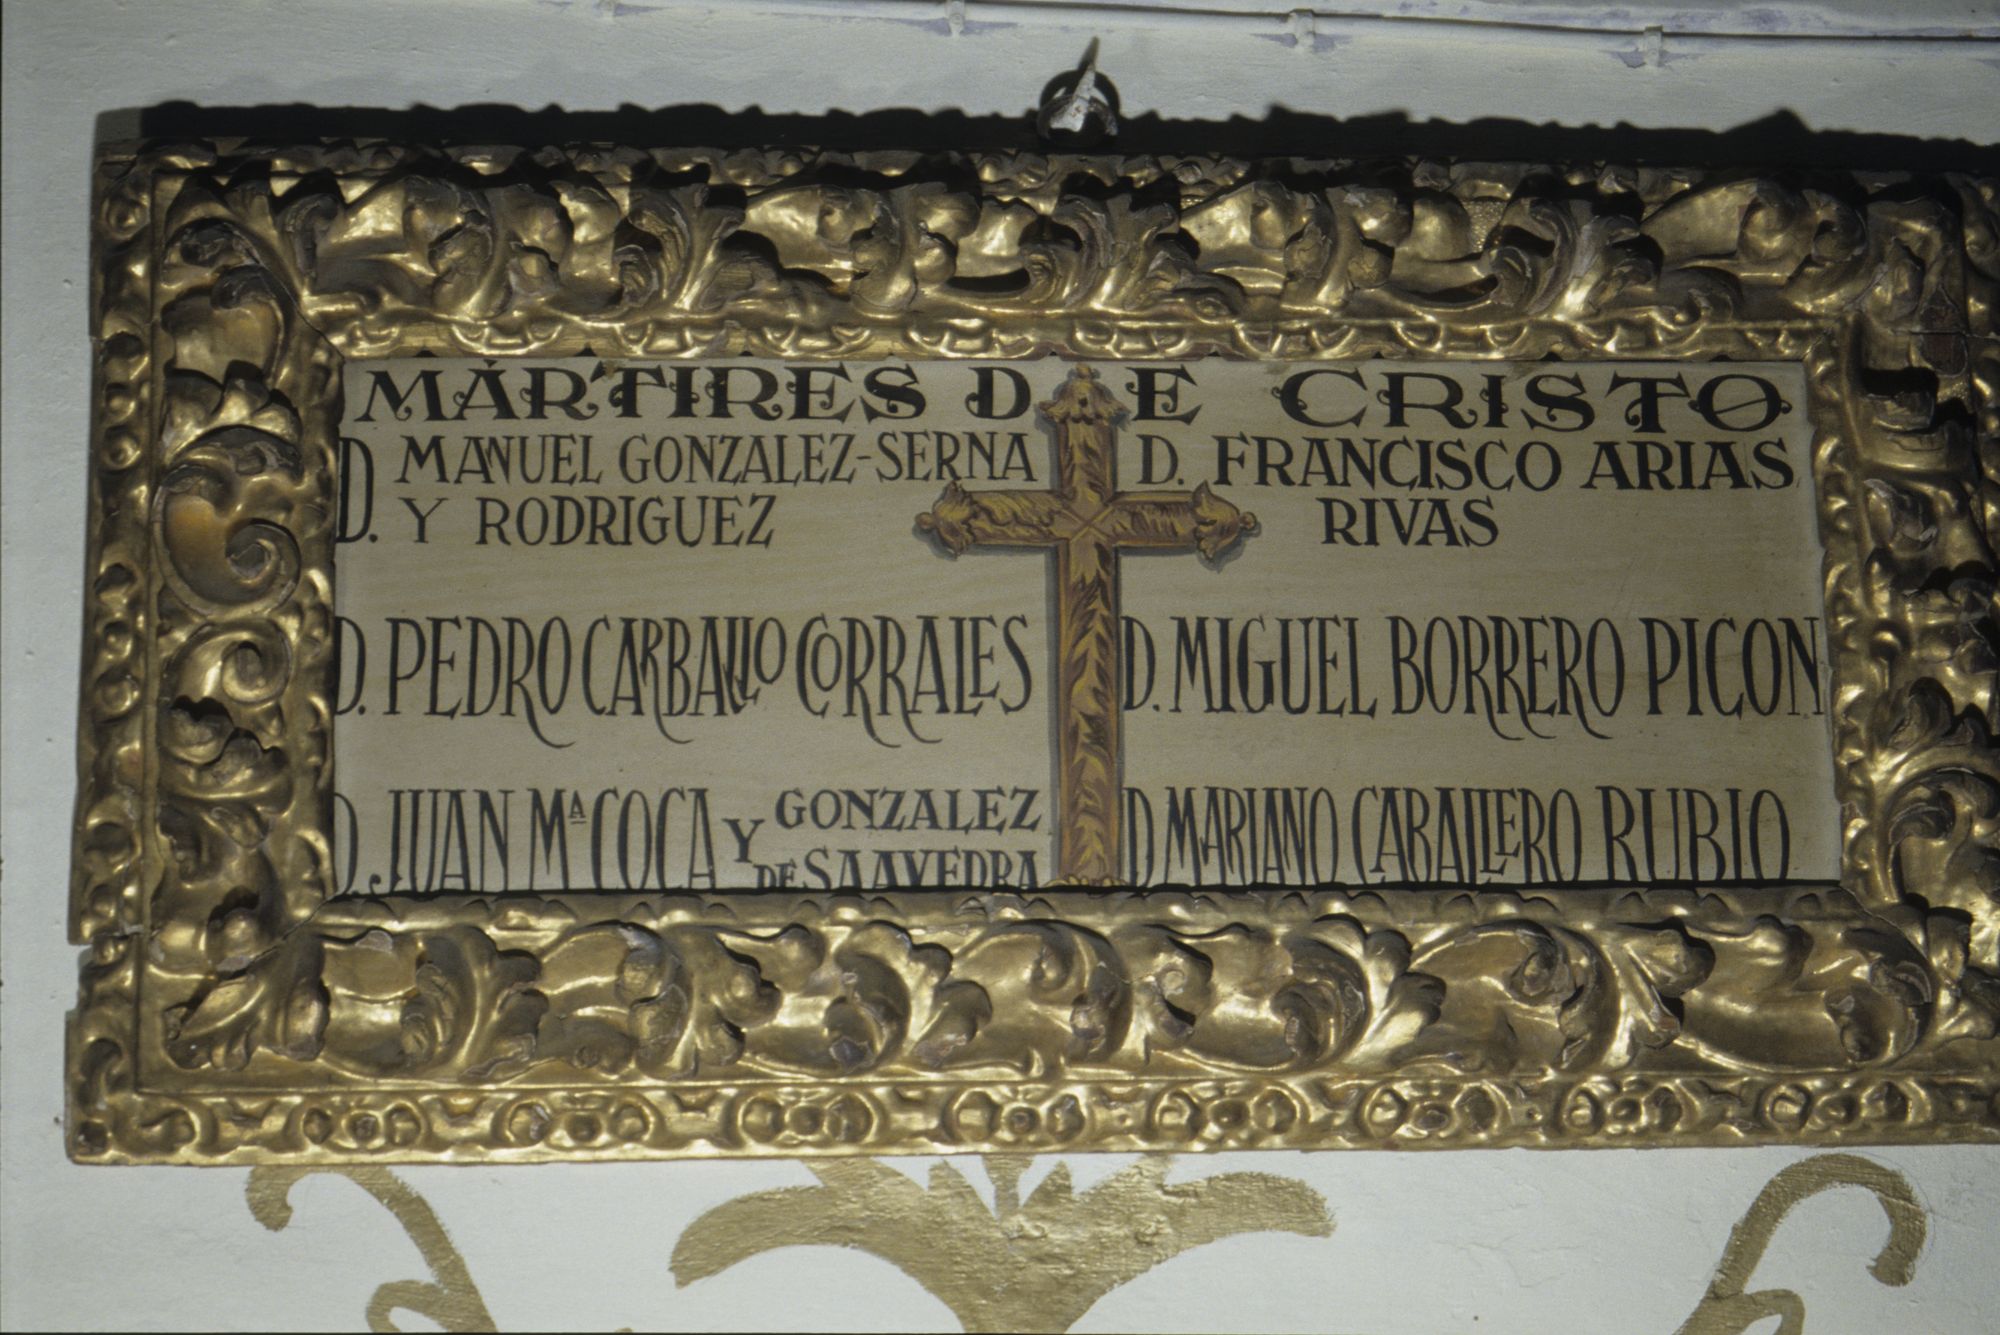 MÁRTIRES DE CRISTO
D. MANUEL GONZALEZ-SERNA
D. Y RODRIGUEZ
D. FRANCISCO ARIAS
RIVAS
D. PEDRO CARBALLO CORRALES
D. MIGUEL BORRERO PICON
D. JUAN Mª COCA Y GONZALEZ
DE SAAVEDRA
D MARIANO CABALLERO RUBIO